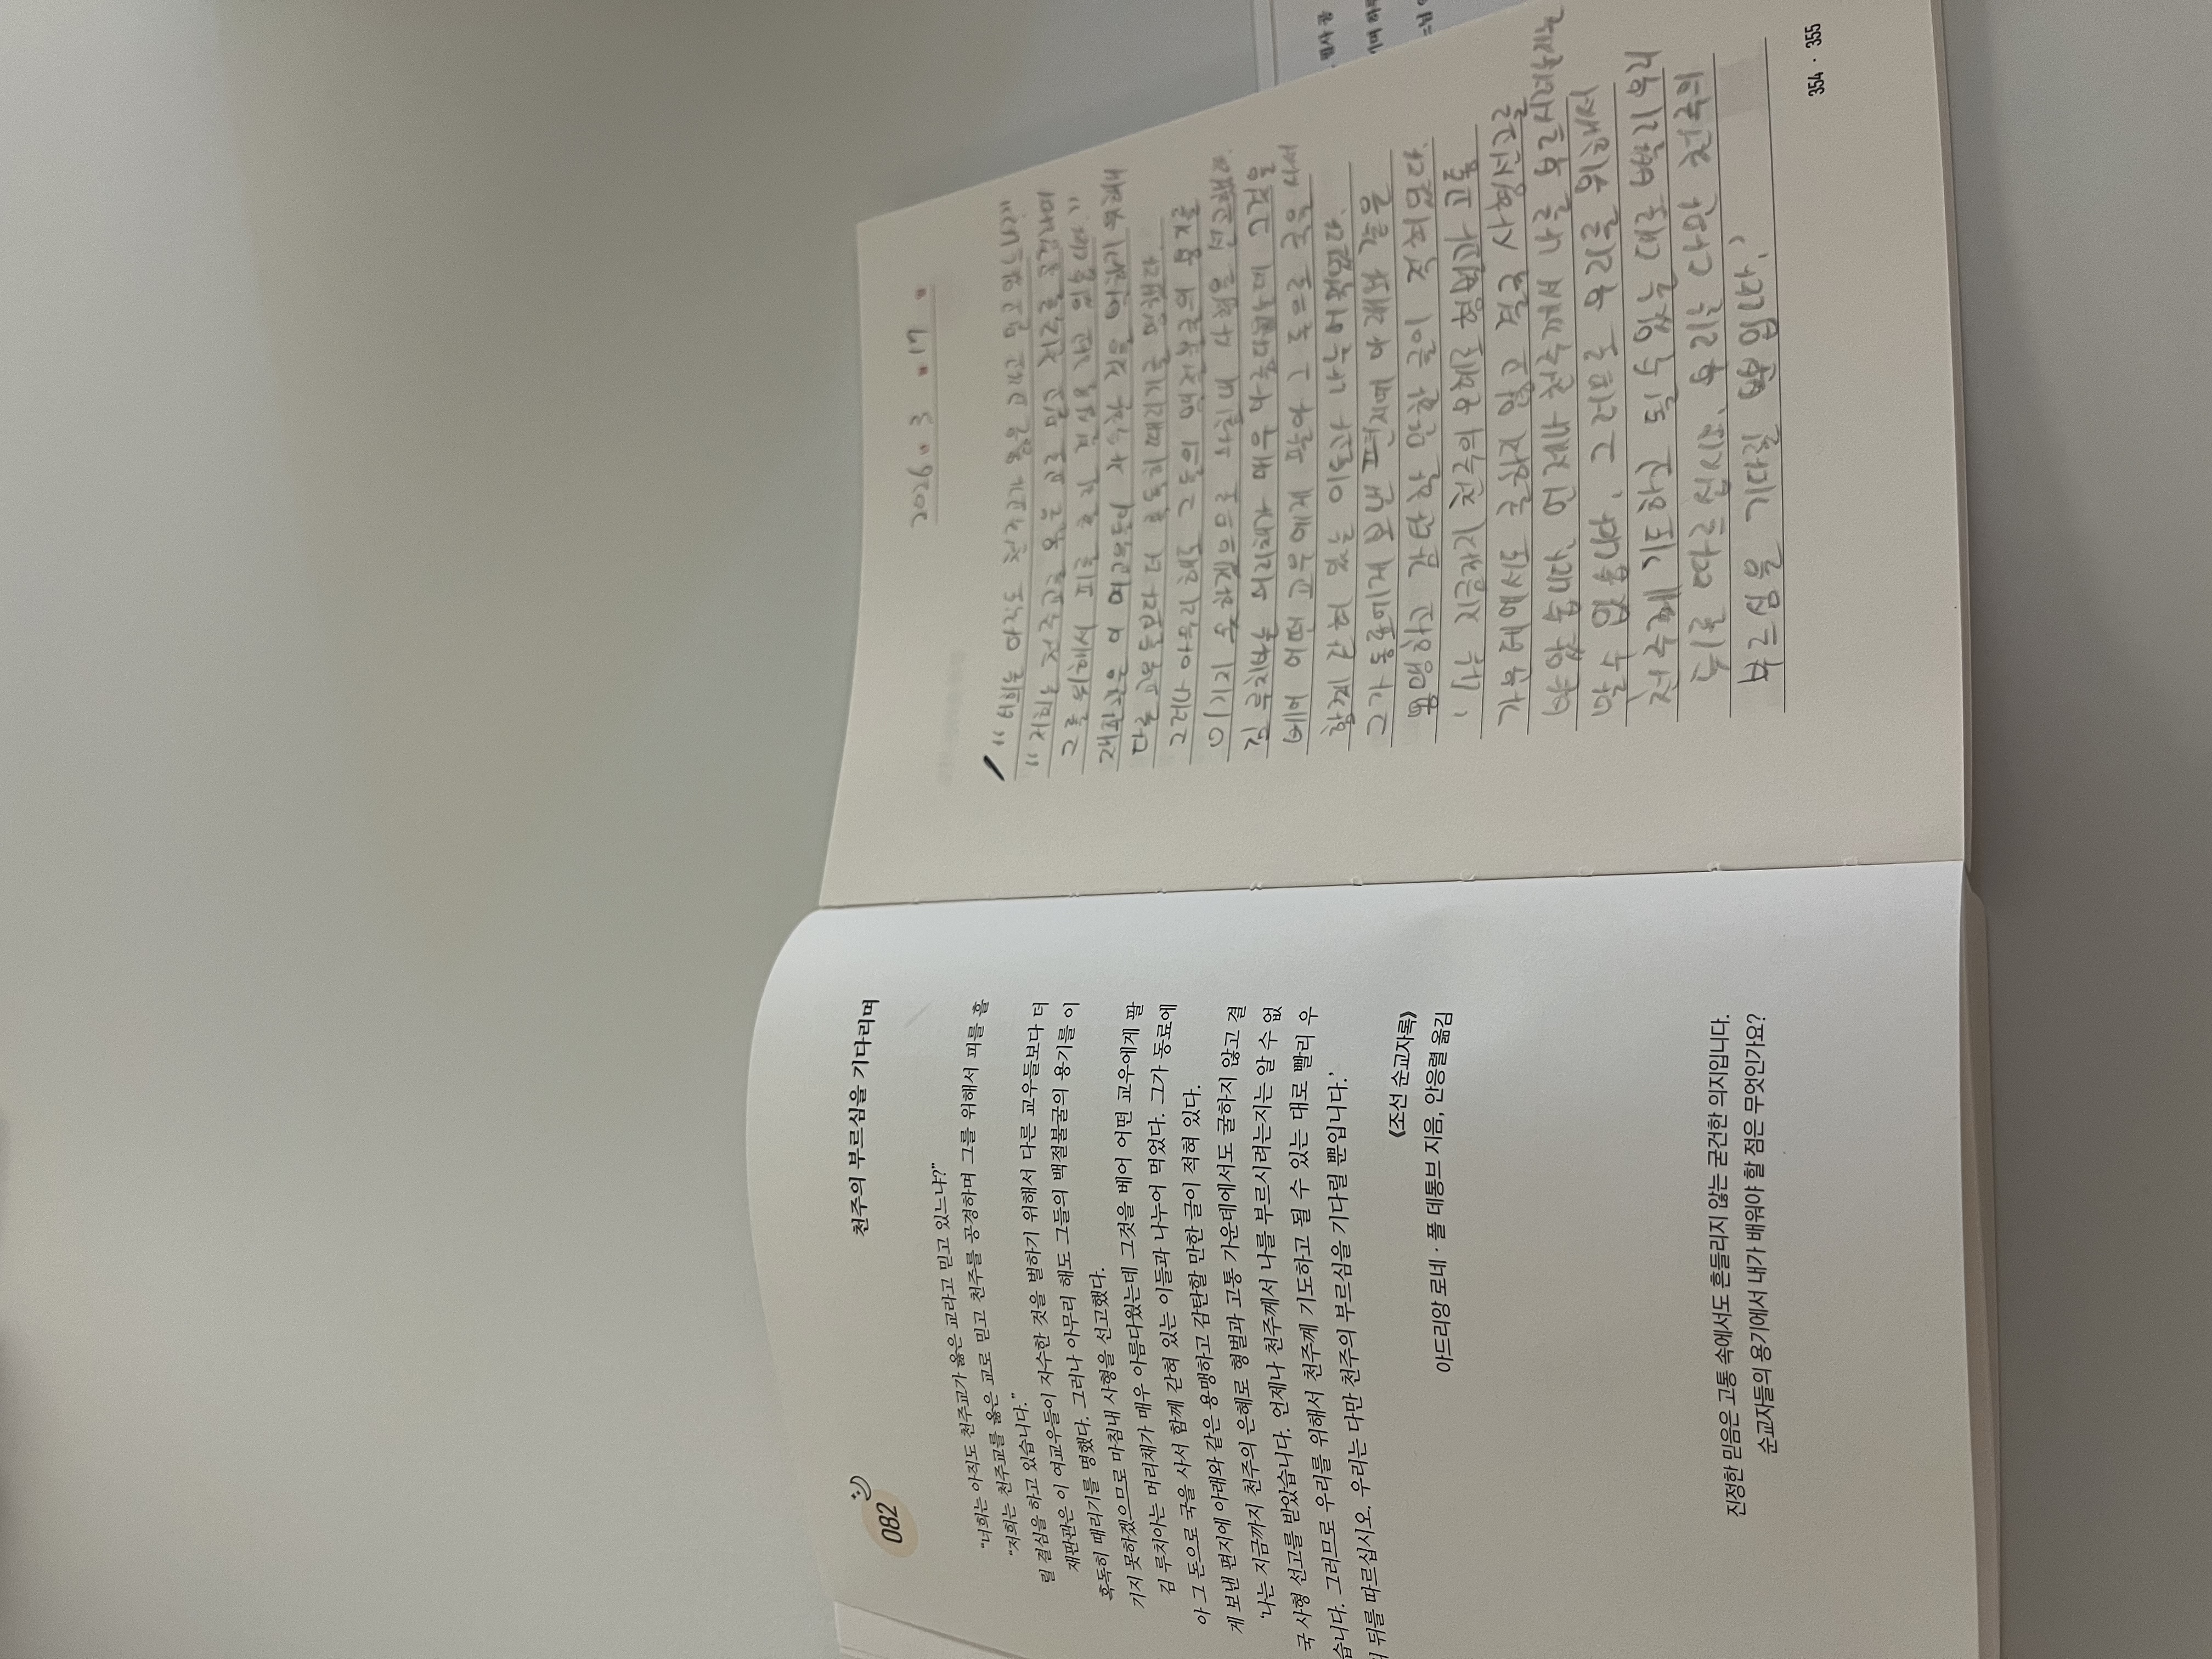 082
천주의 부르심을 기다리며
“너희는 아직도 천주교가 옳은 교라고 믿고 있느냐?”
“저희는 천주교를 옳은 교로 믿고 천주를 공경하며 그를 위해서 피를 흘
릴 결심을 하고 있습니다.”
재판관은 이 여교우들이 자수한 것을 벌하기 위해서 다른 교우들보다 더
혹독히 때리기를 명했다. 그러나 아무리 해도 그들의 백절불굴의 용기를 이
기지 못하겠으므로 마침내 사형을 선고했다.
김 루치아는 머리채가 매우 아름다웠는데 그것을 베어 어떤 교우에게 팔
아 그 돈으로 국을 사서 함께 갇혀 있는 이들과 나누어 먹었다. 그가 동료에
게 보낸 편지에 아래와 같은 용맹하고 감탄할 만한 글이 적혀 있다.
‘나는 지금까지 천주의 은혜로 형벌과 고통 가운데에서도 굴하지 않고 결
국 사형 선고를 받았습니다. 언제나 천주께서 나를 부르시려는지는 알 수 없
습니다. 그러므로 우리를 위해서 천주께 기도하고 될 수 있는 대로 빨리 우
뒤를 따르십시오. 우리는 다만 천주의 부르심을 기다릴 뿐입니다.’
《조선 순교자록》
아드리앙 로네 · 폴 데통브 지음, 안응렬 옮김
진정한 믿음은 고통 속에서도 흔들리지 않는 굳건한 의지입니다.
순교자들의 용기에서 내가 배워야 할 점은 무엇인가요?
2026 . 3 . 17 .
“너희는 아직도 천주교가 옳은 교라고 믿고 있느냐?”
“저희는 천주교를 옳은 교로 믿고 천주를 공경하며
그를 위해서 피를 흘릴 결심을 하고 있습니다.”
재판관은 이 여교우들이 자수한 것을 벌하기 위해서
다른 교우들보다 더 혹독히 때리기를 명했다.
그러나 아무리 해도 그들의 백절불굴의 용기를
이기지 못하겠으므로 마침내 사형을 선고했다.
김 루치아는 머리채가 매우 아름다웠는데 그것을
베어 어떤 교우에게 팔아 그 돈으로 국을 사서
함께 갇혀 있는 이들과 나누어 먹었다.
그가 동료에게 보낸 편지에 아래와 같은
용맹하고 감탄할 만한 글이 적혀 있다.
‘나는 지금까지 천주의 은혜로 형벌과 고통
가운데에서도 굴하지 않고 결국 사형선고를
받았습니다. 언제나 천주께서 나를 부르시려는지는
알 수 없습니다. 그러므로 우리를 위해서
천주께 기도하고 될 수 있는 대로 빨리 우리
뒤를 따르십시오. 우리는 다만 천주의
부르심을 기다릴 뿐입니다.’
354 · 355